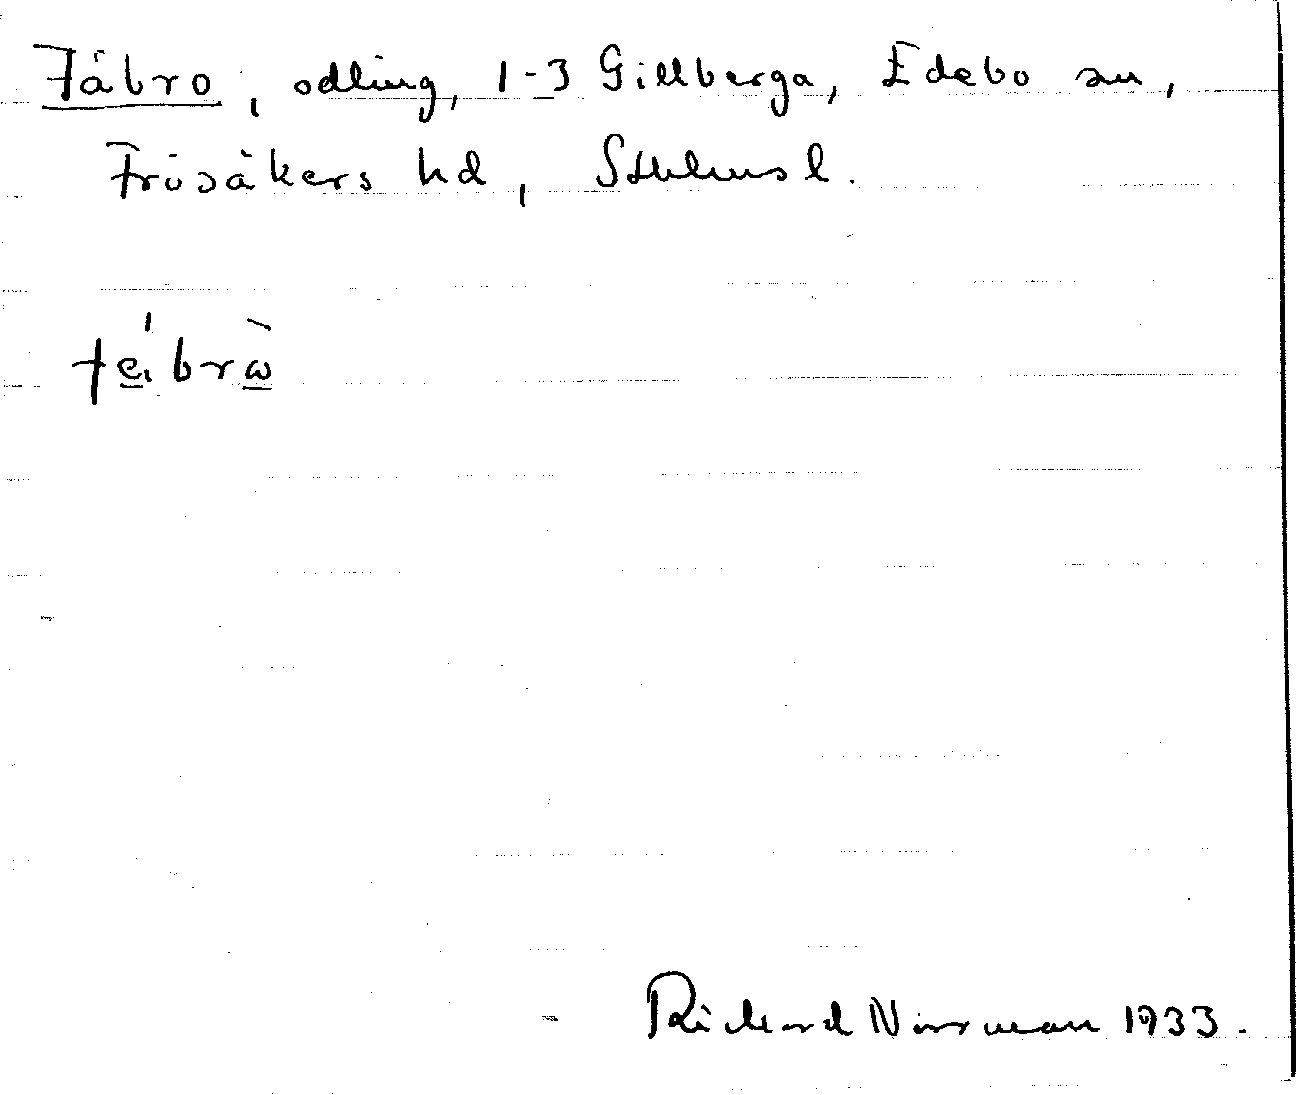 Fäbro, odling, 1-3 Gillberga, Edebo sn,
Frösåkers hd, Sthlms l.
Richard Norrman 1933.